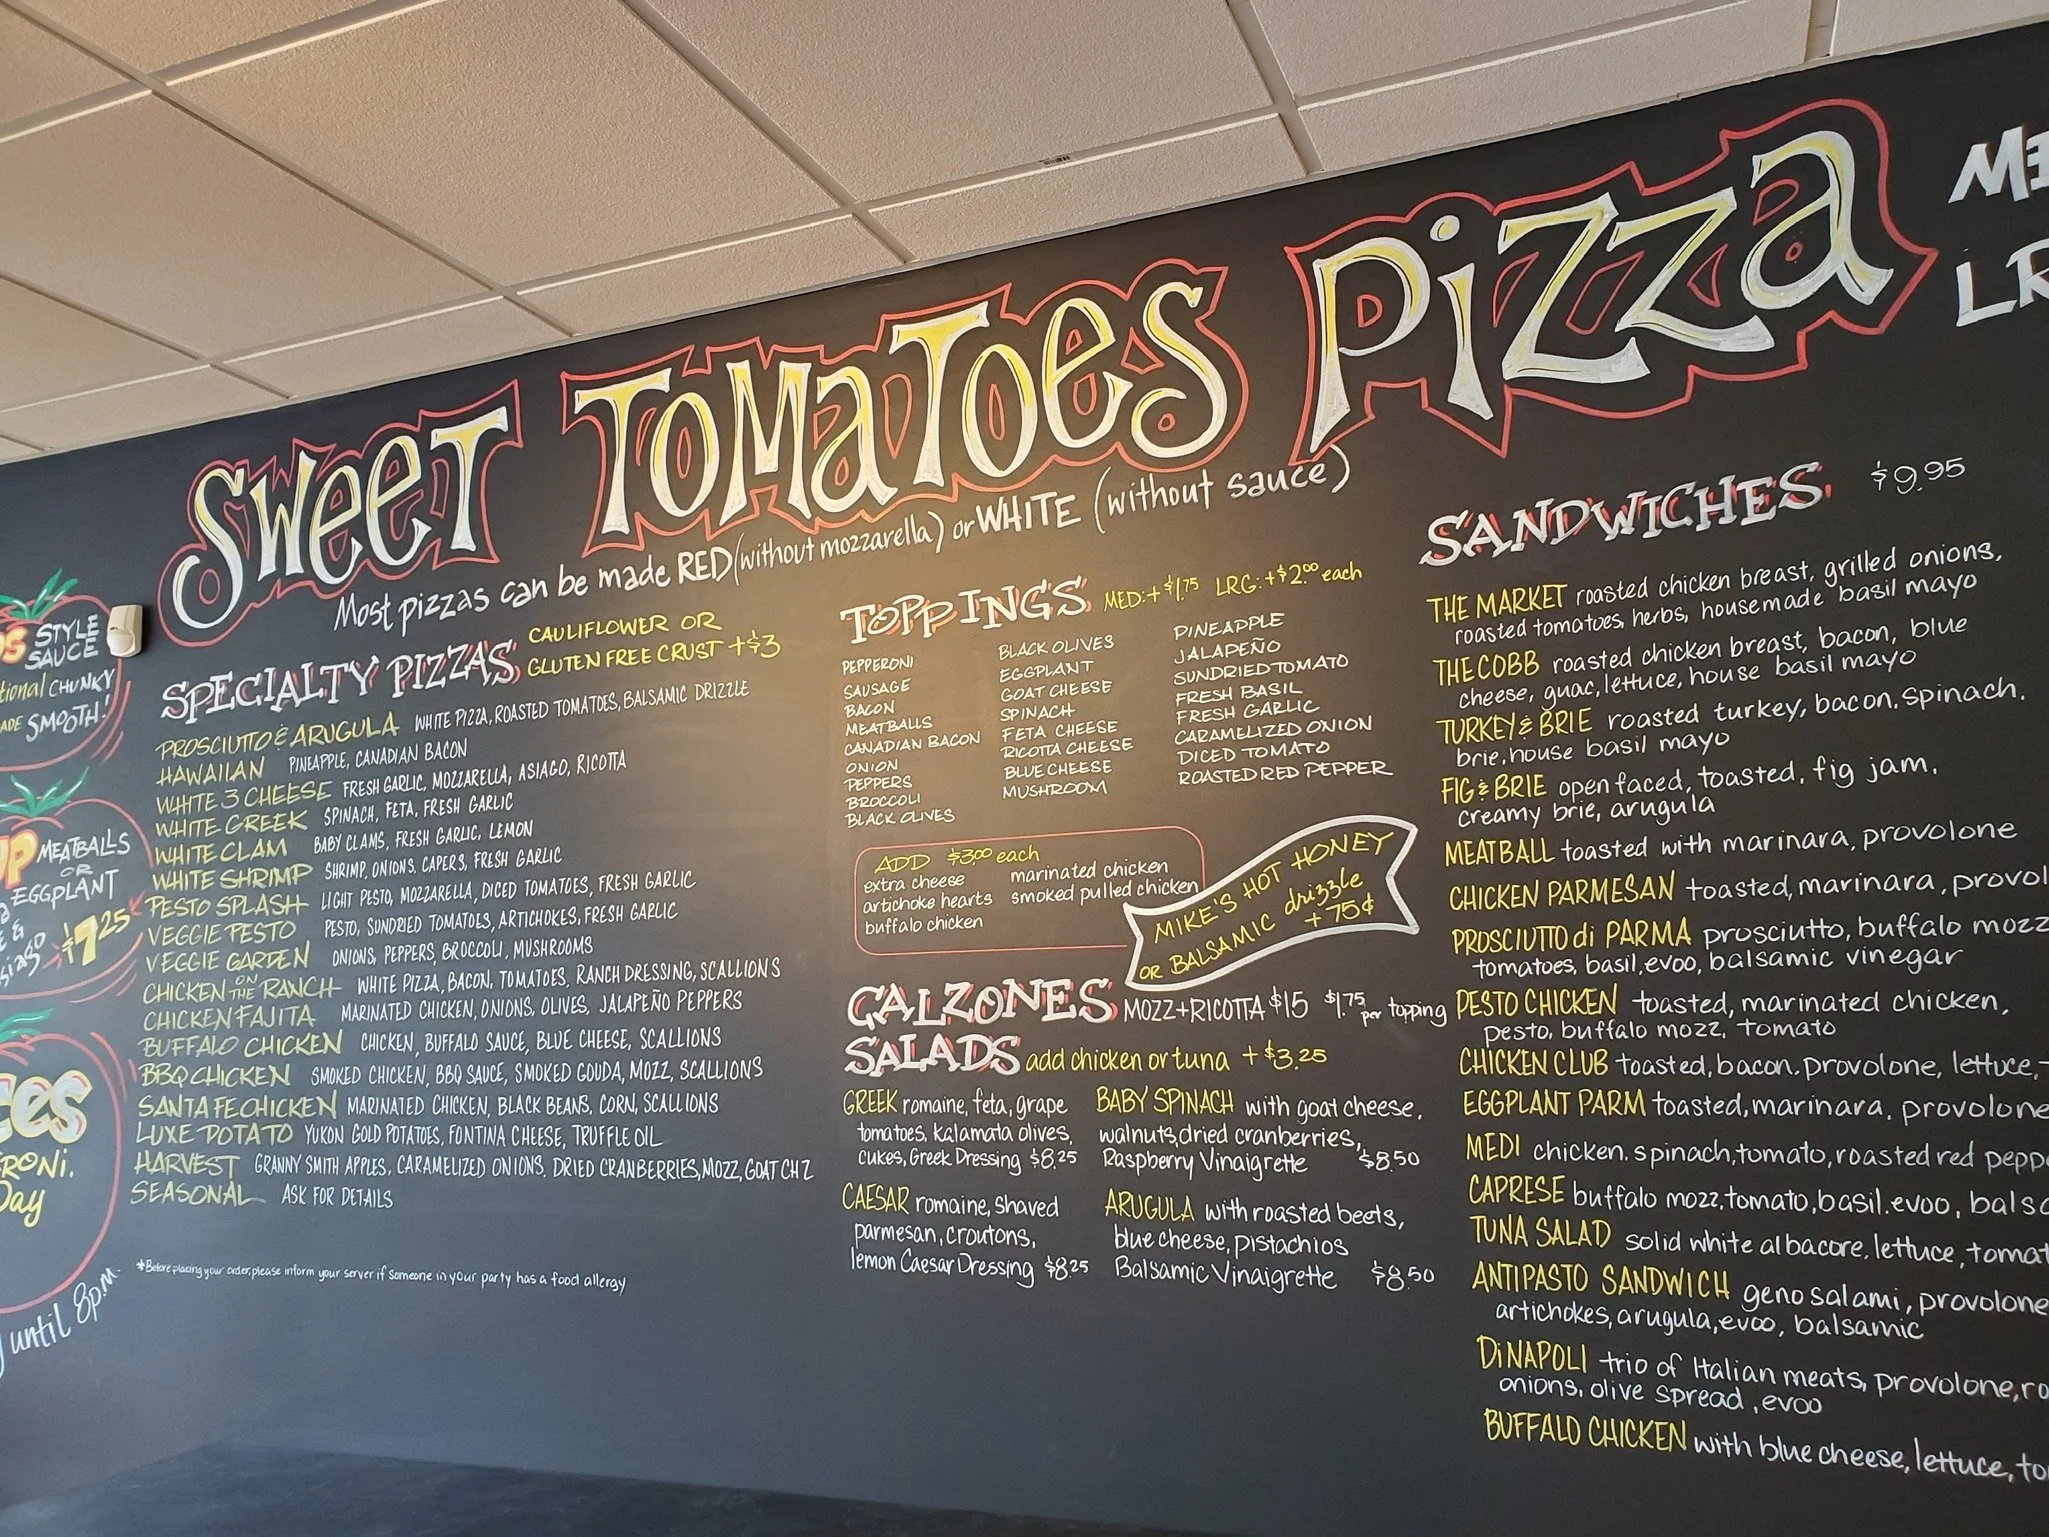 SWEET TOMATOES PIZZA
Most pizzas can be made RED (without mozzarella) or WHITE (without sauce)
STYLE
SAUCE
CHUNKY
SMOOTH!
MEATBALLS
OR
EGGPLANT
&
$7.25
Day
until 8p.m.
SPECIALTY PIZZAS
CAULIFLOWER OR
GLUTEN FREE CRUST +$3
PROSCIUTTO & ARUGULA WHITE PIZZA, ROASTED TOMATOES, BALSAMIC DRIZZLE
HAWAIIAN PINEAPPLE, CANADIAN BACON
WHITE 3 CHEESE FRESH GARLIC, MOZZARELLA, ASIAGO, RICOTTA
WHITE GREEK SPINACH, FETA, FRESH GARLIC
WHITE CLAM BABY CLAMS, FRESH GARLIC, LEMON
WHITE SHRIMP SHRIMP, ONIONS, CAPERS, FRESH GARLIC
PESTO SPLASH LIGHT PESTO, MOZZARELLA, DICED TOMATOES, FRESH GARLIC
VEGGIE PESTO PESTO, SUNDRIED TOMATOES, ARTICHOKES, FRESH GARLIC
VEGGIE GARDEN ONIONS, PEPPERS, BROCCOLI, MUSHROOMS
CHICKEN ON THE RANCH WHITE PIZZA, BACON, TOMATOES, RANCH DRESSING, SCALLIONS
CHICKEN FAJITA MARINATED CHICKEN, ONIONS, OLIVES, JALAPEÑO PEPPERS
BUFFALO CHICKEN CHICKEN, BUFFALO SAUCE, BLUE CHEESE, SCALLIONS
BBQ CHICKEN SMOKED CHICKEN, BBQ SAUCE, SMOKED GOUDA, MOZZ, SCALLIONS
SANTA FE CHICKEN MARINATED CHICKEN, BLACK BEANS, CORN, SCALLIONS
LUXE POTATO YUKON GOLD POTATOES, FONTINA CHEESE, TRUFFLE OIL
HARVEST GRANNY SMITH APPLES, CARAMELIZED ONIONS, DRIED CRANBERRIES, MOZZ, GOAT CHZ
SEASONAL ASK FOR DETAILS
*Before placing your order, please inform your server if someone in your party has a food allergy
TOPPINGS MED: +$1.75 LRG: +$2.00 each
PEPPERONI
SAUSAGE
BACON
MEATBALLS
CANADIAN BACON
ONION
PEPPERS
BROCCOLI
BLACK OLIVES
BLACK OLIVES
EGGPLANT
GOAT CHEESE
SPINACH
FETA CHEESE
RICOTTA CHEESE
BLUE CHEESE
MUSHROOM
PINEAPPLE
JALAPEÑO
SUNDRIED TOMATO
FRESH BASIL
FRESH GARLIC
CARAMELIZED ONION
DICED TOMATO
ROASTED RED PEPPER
ADD $3.00 each
extra cheese
artichoke hearts
buffalo chicken
marinated chicken
smoked pulled chicken
MIKE'S HOT HONEY
OR BALSAMIC drizzle
+ 75¢
CALZONES MOZZ+RICOTTA $15 $1.75 per topping
SALADS add chicken or tuna + $3.25
GREEK romaine, feta, grape
tomatoes, kalamata olives,
cukes, Greek Dressing $8.25
CAESAR romaine, shaved
parmesan, croutons,
lemon Caesar Dressing $8.25
BABY SPINACH with goat cheese,
walnuts, dried cranberries,
Raspberry Vinaigrette $8.50
ARUGULA with roasted beets,
blue cheese, pistachios
Balsamic Vinaigrette $8.50
SANDWICHES $9.95
THE MARKET roasted chicken breast, grilled onions,
roasted tomatoes, herbs, housemade basil mayo
THE COBB roasted chicken breast, bacon, blue
cheese, guac, lettuce, house basil mayo
TURKEY & BRIE roasted turkey, bacon, spinach,
brie, house basil mayo
FIG & BRIE open faced, toasted, fig jam,
creamy brie, arugula
MEATBALL toasted with marinara, provolone
CHICKEN PARMESAN toasted, marinara, provol
PROSCIUTTO di PARMA prosciutto, buffalo mozz
tomatoes, basil, evoo, balsamic vinegar
PESTO CHICKEN toasted, marinated chicken,
pesto, buffalo mozz, tomato
CHICKEN CLUB toasted, bacon, provolone, lettuce,
EGGPLANT PARM toasted, marinara, provolone
MEDI chicken, spinach, tomato, roasted red pepp
CAPRESE buffalo mozz, tomato, basil, evoo, bals
TUNA SALAD solid white albacore, lettuce, tomat
ANTIPASTO SANDWICH geno salami, provolone
artichokes, arugula, evoo, balsamic
DiNAPOLI trio of Italian meats, provolone, ro
onions, olive spread, evoo
BUFFALO CHICKEN with blue cheese, lettuce, to